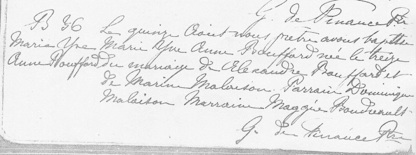 G. de Finance Ptr
B 36 Le quinze Août nous prêtre avons baptisé
Marie Marie Anne Bouffard née le treize
Anne Bouffard du mariage de Alexandre Bouffard et
de Marie Malaison. Parrain Dominique
Malaison Marraine Maggie Boudreault
G. de Finance Ptr